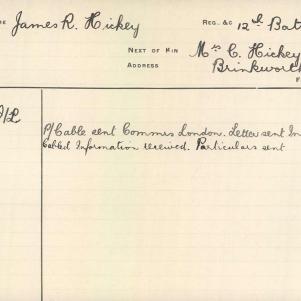 James R. Hickey REG. &C 12th Bat
NEXT OF KIN Mrs C. Hickey
ADDRESS Brinkworth
P/Cable sent Commrs London. Letter sent In
Cabled Information received. Particulars sent